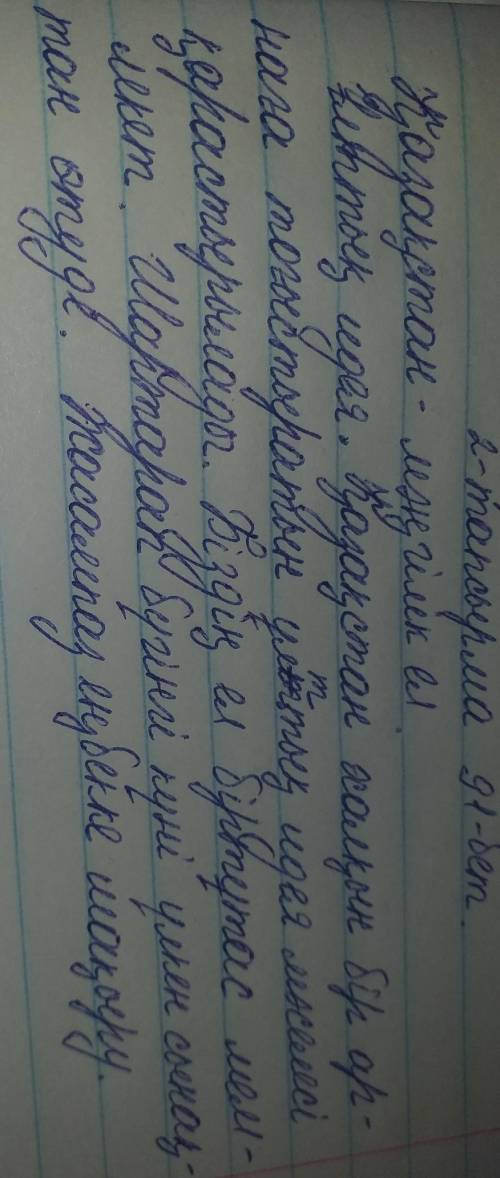 2-тапсырма 91-бет.
Қазақстан - мәңгілек ел
Ұлттық идея. Қазақстан халқын бір ар-
наға тоғыстыратын ұлттық идея мәселесі
қарастырылады. Біздің ел біртұтас мем-
лекет. Шартарап бүгінгі күні үлкен сынақ-
тан өтуде. Жасампаз еңбекке шақыру.